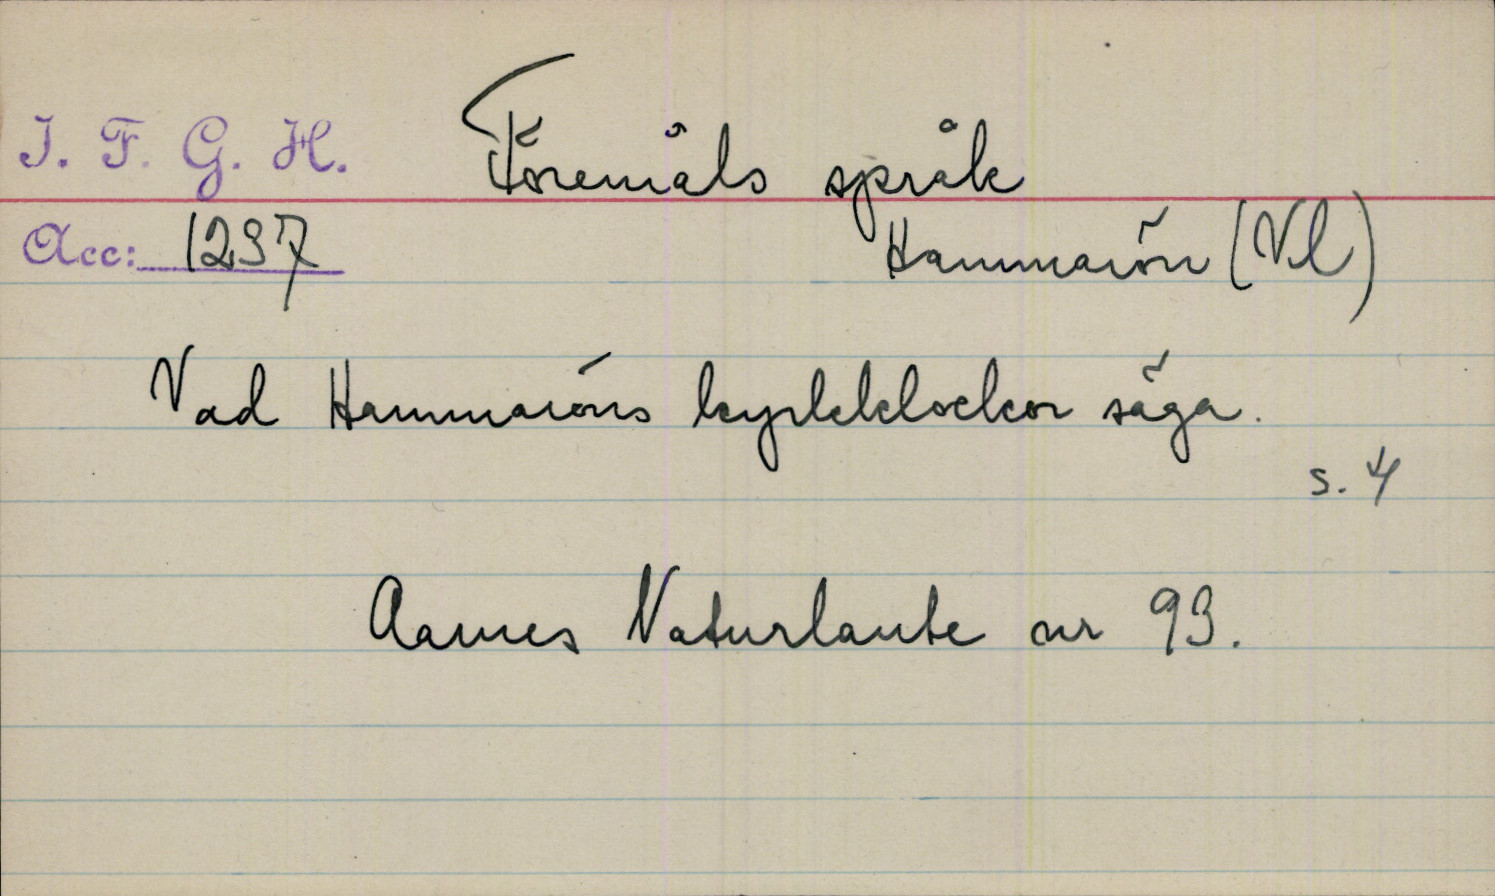 I. F. G. H. Föremåls språk
Acc: 1237 Hammarön (Vl)
Vad Hammaröns kyrkklockor säga.
s. 4
Aarnes Naturlaute nr 93.